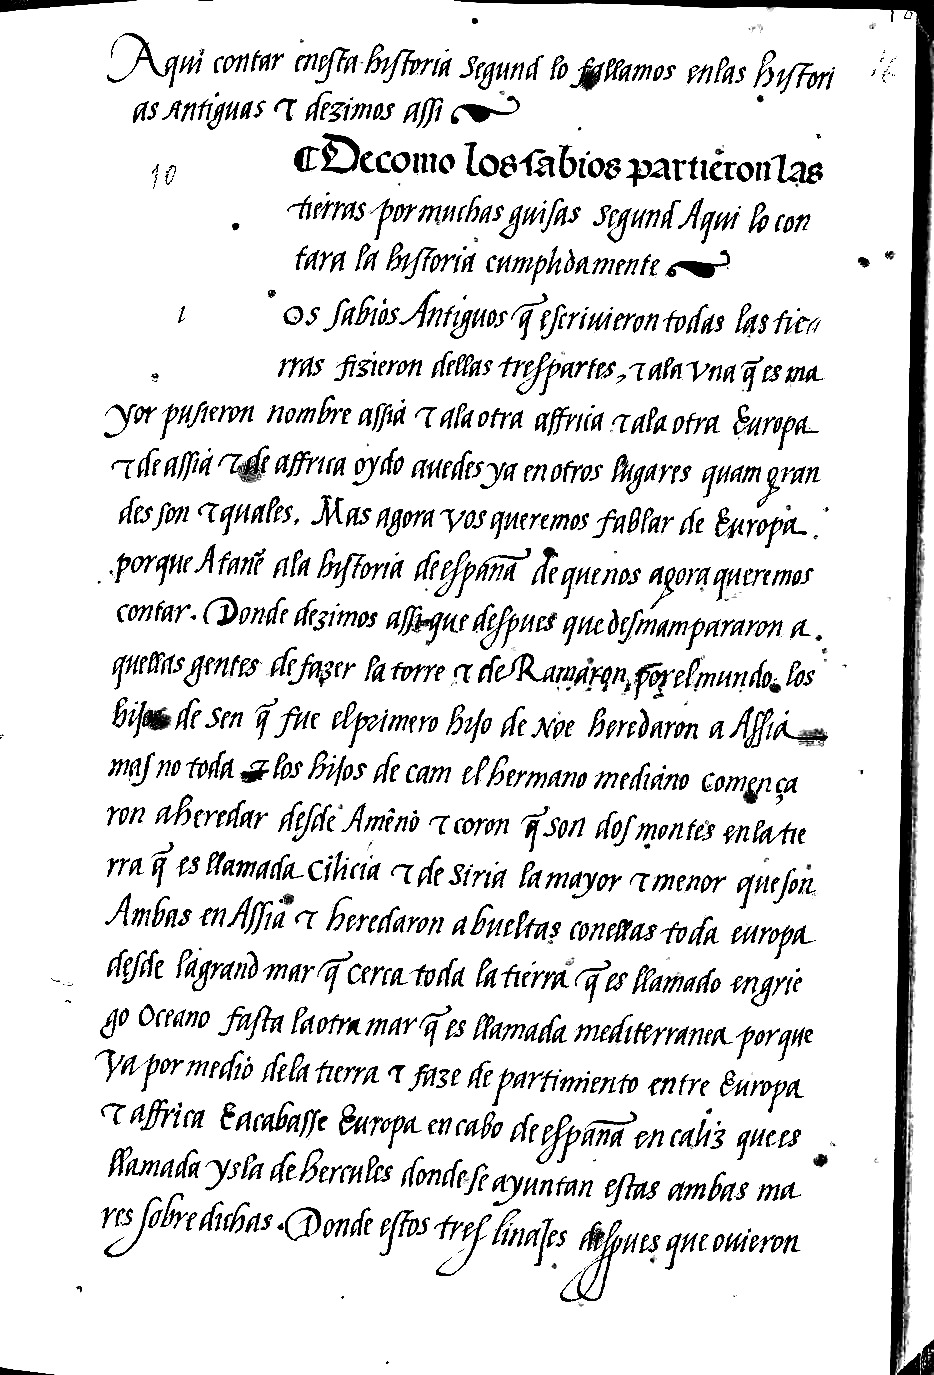 Aqui contar enesta historia Segund lo fallamos enlas histori
as Antiguas τ dezimos assi
10
¶De como los sabios partieron las
tierras por muchas guisas Segund Aqui lo con
tara la historia cumplidamente
1
os sabios Antiguos q̃ escriuieron todas las tie
rras fizieron dellas tres partes, τ ala Vna q̃ es ma
yor pusieron nombre assia τ ala otra affrica τ ala otra Europa
τ de assia τ de affrica oydo auedes ya en otros lugares quam gran
des son τ quales. Mas agora vos queremos fablar de Europa.
porque Atañe ala historia de españa de que nos agora queremos
contar. Donde dezimos assi que despues que desmampararon a
quellas gentes de fazer la torre τ de Ramaron por el mundo. los
hijos de Sen q̃ fue el primero hijo de Noe heredaron a Assia
mas no toda τ los hijos de cam el hermano mediano començа
ron a heredar desde Ameno τ coron q̃ son dos montes enla tie
rra q̃ es llamada Cilicia τ de Siria la mayor τ menor que son
Ambas en Assia τ heredaron a bueltas conellas toda europa
desde la grand mar q̃ cerca toda la tierra q̃ es llamado en grie
go Oceano fasta la otra mar q̃ es llamada mediterranea porque
Va por medio dela tierra τ faze departimiento entre Europa
τ affrica E acabasse Europa en cabo de españa en caliz que es
llamada ysla de hercules donde se ayuntan estas ambas ma
res sobre dichas. Donde estos tres linajes despues que ouieron